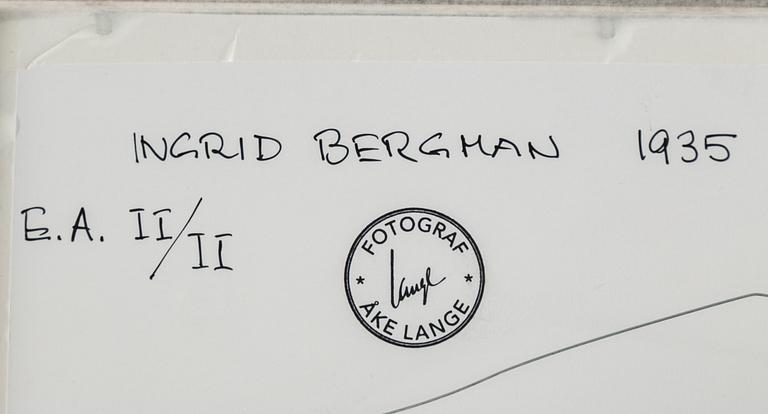 INGRID BERGMAN 1935
E.A. II/II
FOTOGRAF
Lange
ÅKE LANGE